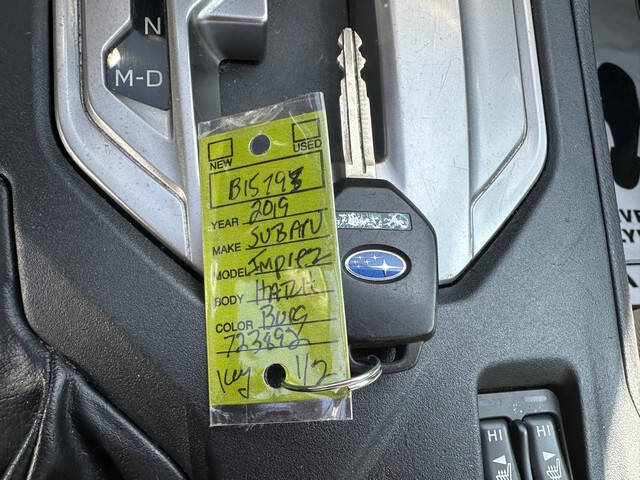 N
M-D
NEW USED
B15798
YEAR 2019
MAKE SUBARU
MODEL Imprez
BODY HATCH
COLOR BURG
723892
Key 1/2
HI HI